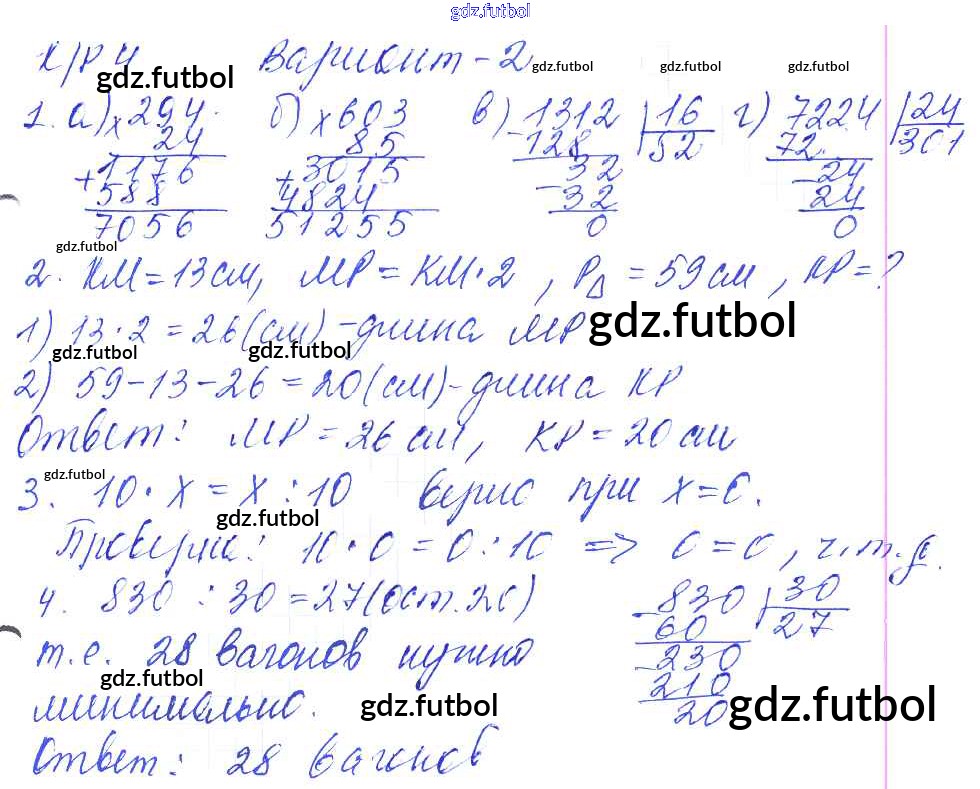 gdz.futbol
К/Р 4 Вариант - 2
gdz.futbol gdz.futbol gdz.futbol gdz.futbol
1. а) × 294 б) × 603 в) 1312 | 16 г) 7224 | 24
24 85 - 128 52 72 301
+ 1176 + 3015 32 - 24
588 4824 - 32 24
7056 51255 0 0
gdz.futbol
2. КМ = 13 см, МР = КМ · 2, Р△ = 59 см, КР = ?
1) 13 · 2 = 26 (см) - длина МР gdz.futbol
gdz.futbol gdz.futbol
2) 59 - 13 - 26 = 20 (см) - длина КР
Ответ: МР = 26 см, КР = 20 см
gdz.futbol
3. 10 · х = х : 10 верно при х = 0.
gdz.futbol
Проверка: 10 · 0 = 0 : 10 => 0 = 0, ч.т.д.
4. 830 : 30 = 27 (ост. 20) - 830 | 30
60 27
т.е. 28 вагонов нужно - 230
gdz.futbol 210
минимально. gdz.futbol 20 gdz.futbol
Ответ: 28 вагонов